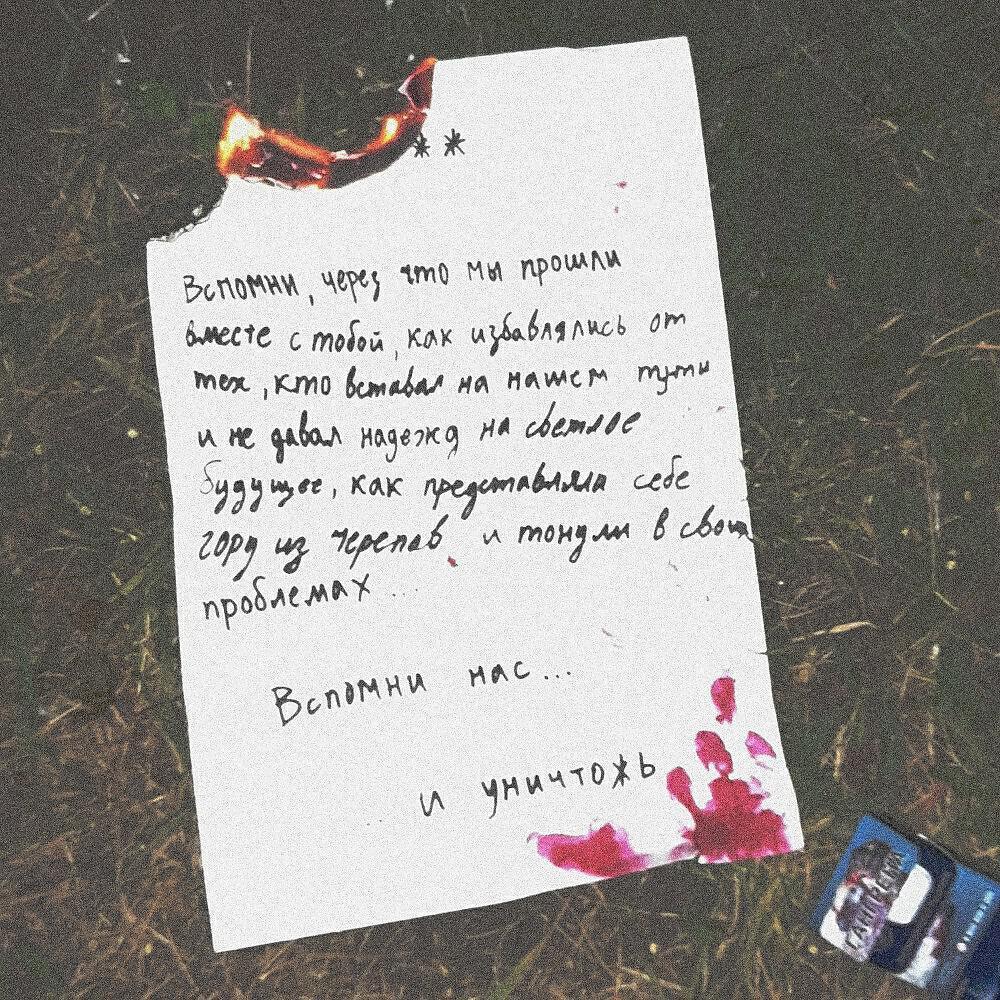 **
Вспомни, через что мы прошли
вместе с тобой, как избавлялись от
тех, кто вставал на нашем пути
и не давал надежд на светлое
будущее, как представляли себе
гору из черепов и тонули в своих
проблемах...
Вспомни нас...
и уничтожь
ГАНГРЕНА